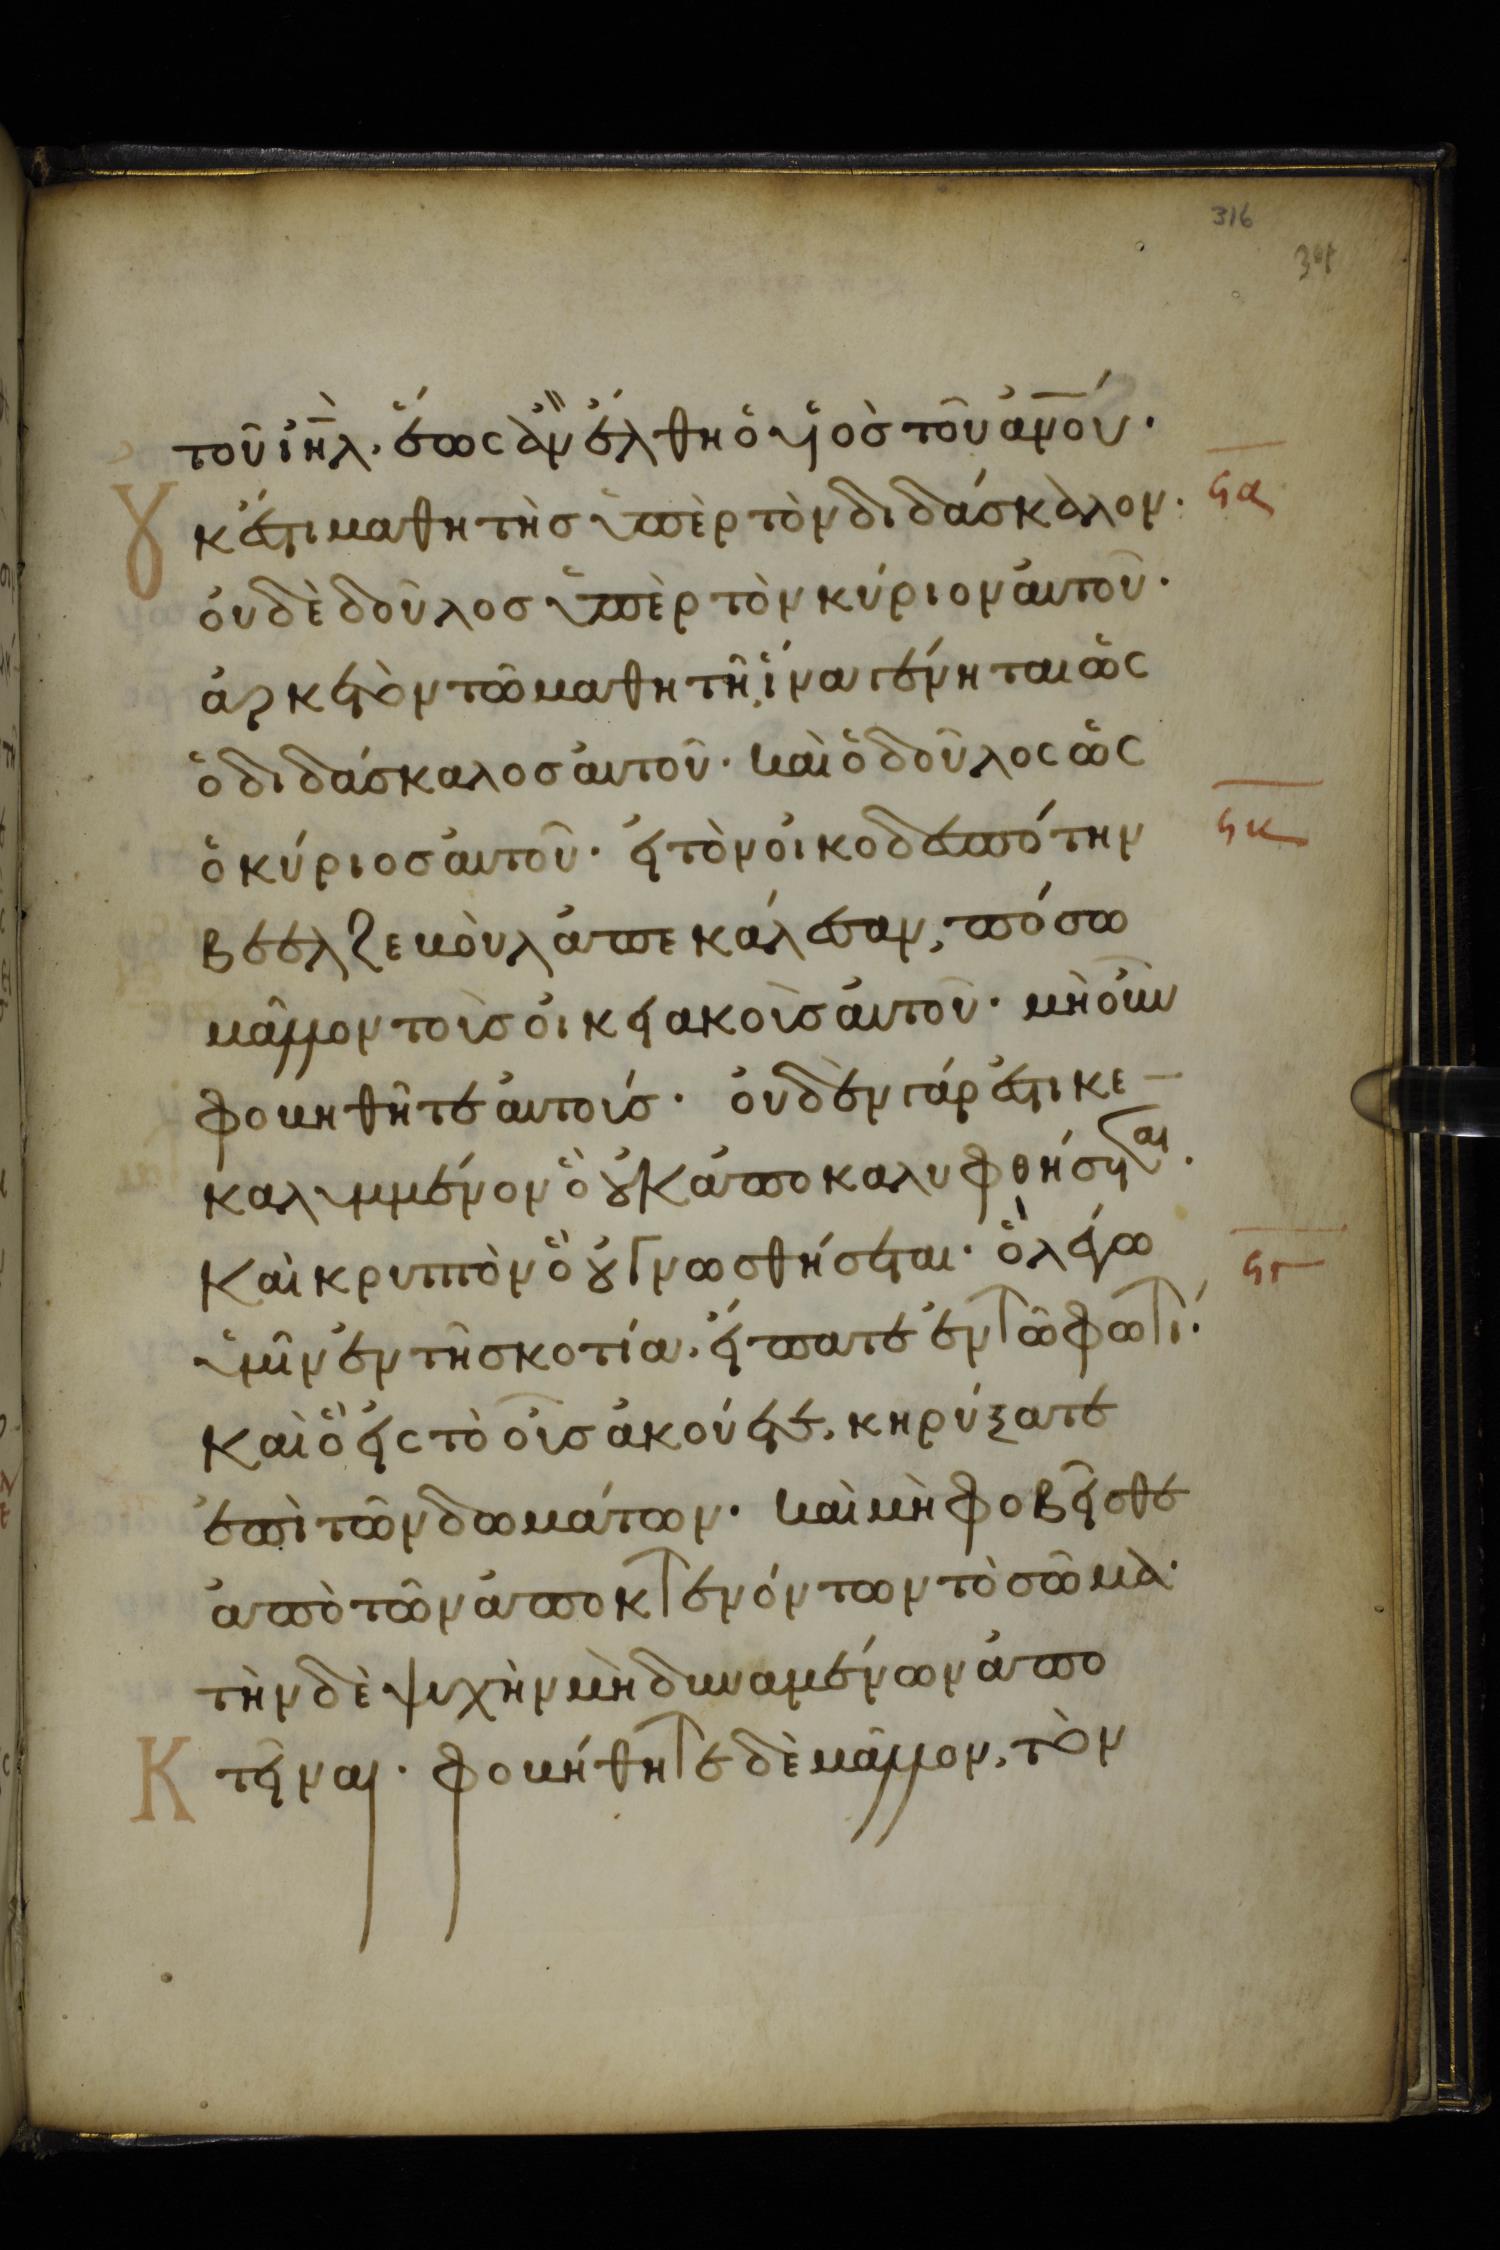 316
τοῦ ἰηλ. ἕως ἂν ἔλθη ὁ υἱὸσ τοῦ ἀνου·
Ȣκ ἔστι μαθητὴσ ὑπὲρ τὸν διδάσκαλον·
οὐδὲ δοῦλοσ ὑπὲρ τὸν κύριον αὐτοῦ·
ἀρκετὸν τῶ μαθητῆ, ἵνα γένηται ὡς
ὁ διδάσκαλοσ αὐτοῦ· καὶ ὁ δοῦλος ὡς
ὁ κύριοσ αὐτοῦ· εἰ τὸν οἰκοδεσπότην
βεελζεβοὺλ ἀπεκάλεσαν, πόσω
μᾶλλον τοὺσ οἰκειακοὺσ αὐτοῦ· μὴ οὖν
φοβηθῆτε αὐτούσ· οὐδὲν γάρ ἐστι κε
καλυμμένον ὃ ȣκ ἀποκαλυφθήσεται·
καὶ κρυπτὸν ὃ ȣ γνωσθήσεται· ὃ λέγω
ὑμῖν ἐν τῆ σκοτία. εἴπατε ἐν τῶ φωτί·
καὶ ὃ εἰς τὸ οὖσ ἀκούετε, κηρύξατε
ἐπὶ τῶν δωμάτων· καὶ μὴ φοβεῖσθε
ἀπὸ τῶν ἀποκτενόντων τὸ σῶμα·
τὴν δὲ ψυχὴν μὴ δυναμένων ἀπο
Κτεῖναι· φοβήθητε δὲ μᾶλλον, τὸν
ϛα
ϛβ
ϛγ